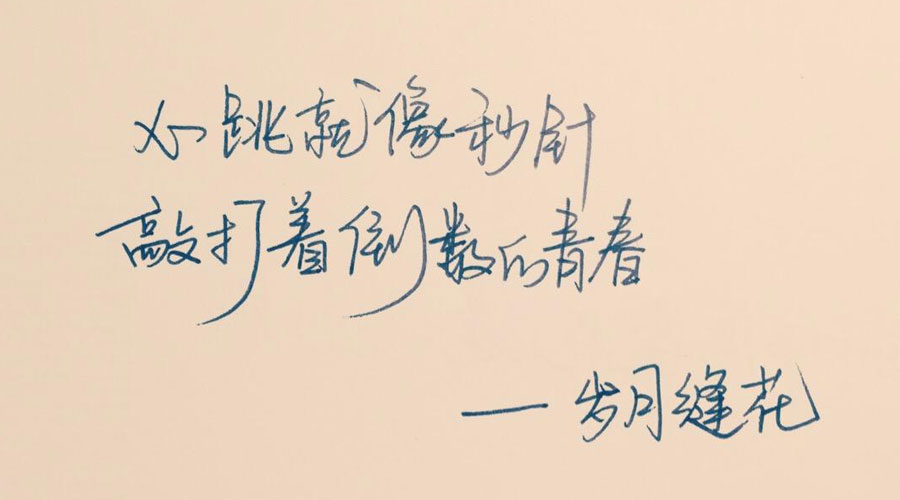 心跳就像秒针
敲打着倒数的青春
— 岁月缝花